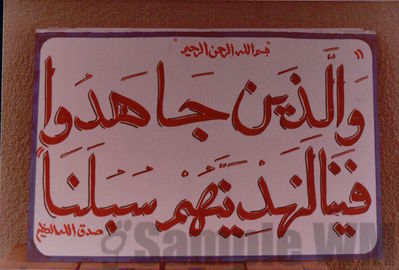 بسم الله الرحمن الرحيم
وَالَّذِين جَاهَدُوا
فينَا لَنَهْدِيَنَّهُمْ سُبُلَنَا
صدق الله العظيم
Sample